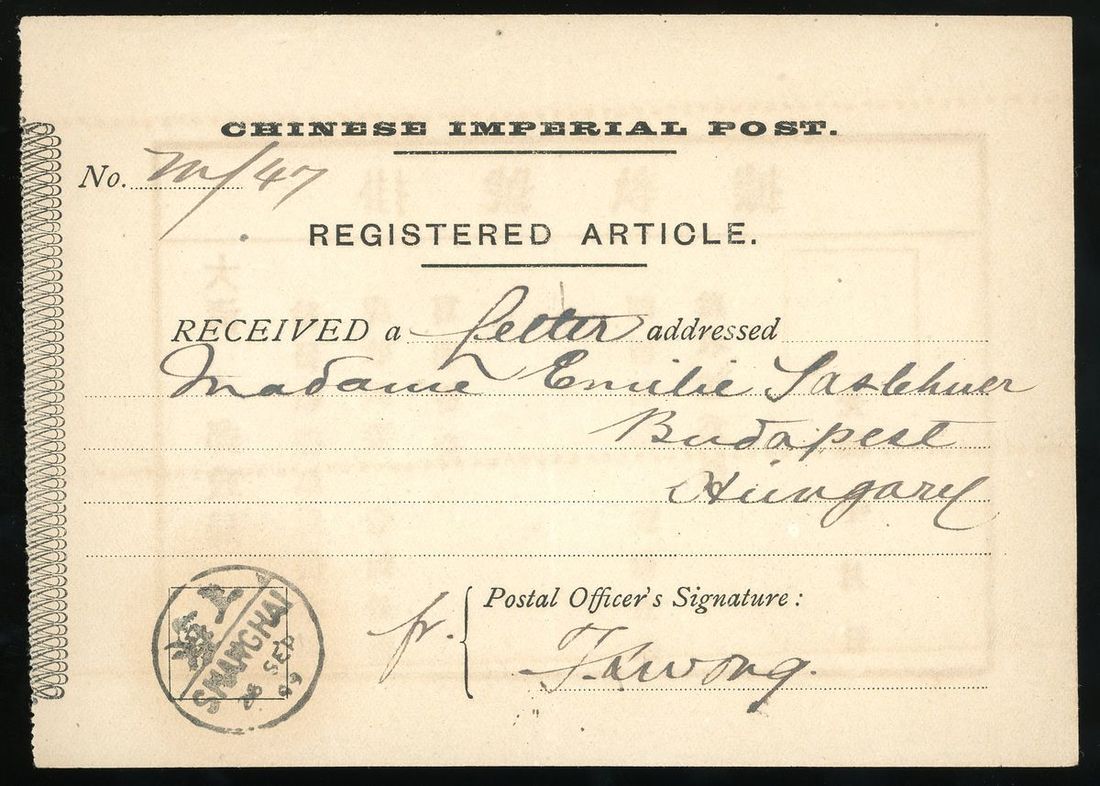 CHINESE IMPERIAL POST.
No. m/47
REGISTERED ARTICLE.
RECEIVED a letter addressed
Madame Emilie
Budapest
Hungary
SHANGHAI
SEP
99
fr. Postal Officer's Signature: